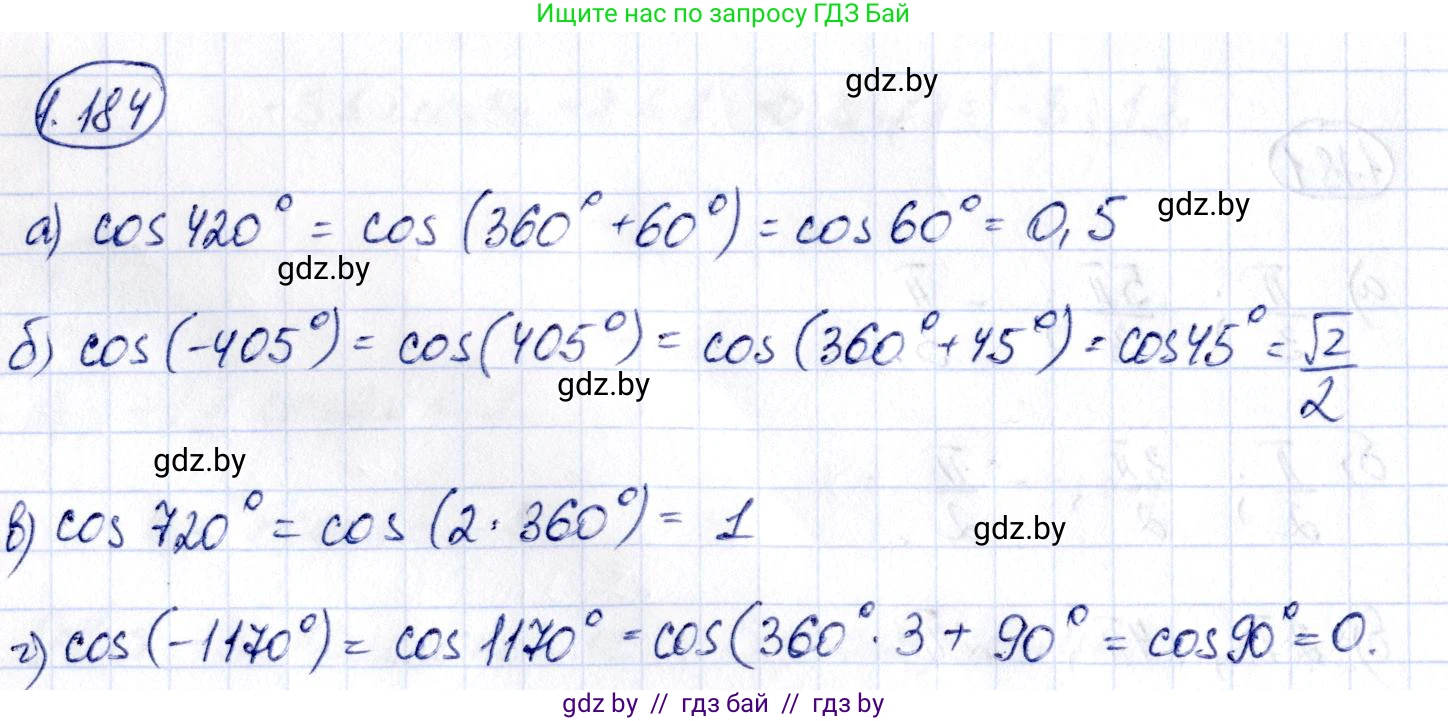 Ищите нас по запросу ГДЗ Бай
1.184
gdz.by
а) cos 420° = cos (360° + 60°) = cos 60° = 0,5
gdz.by
gdz.by
б) cos (-405°) = cos (405°) = cos (360° + 45°) = cos 45° = √2/2
gdz.by
gdz.by
в) cos 720° = cos (2 · 360°) = 1
gdz.by
г) cos (-1170°) = cos 1170° = cos (360° · 3 + 90° = cos 90° = 0.
gdz by // гдз бай // гдз by